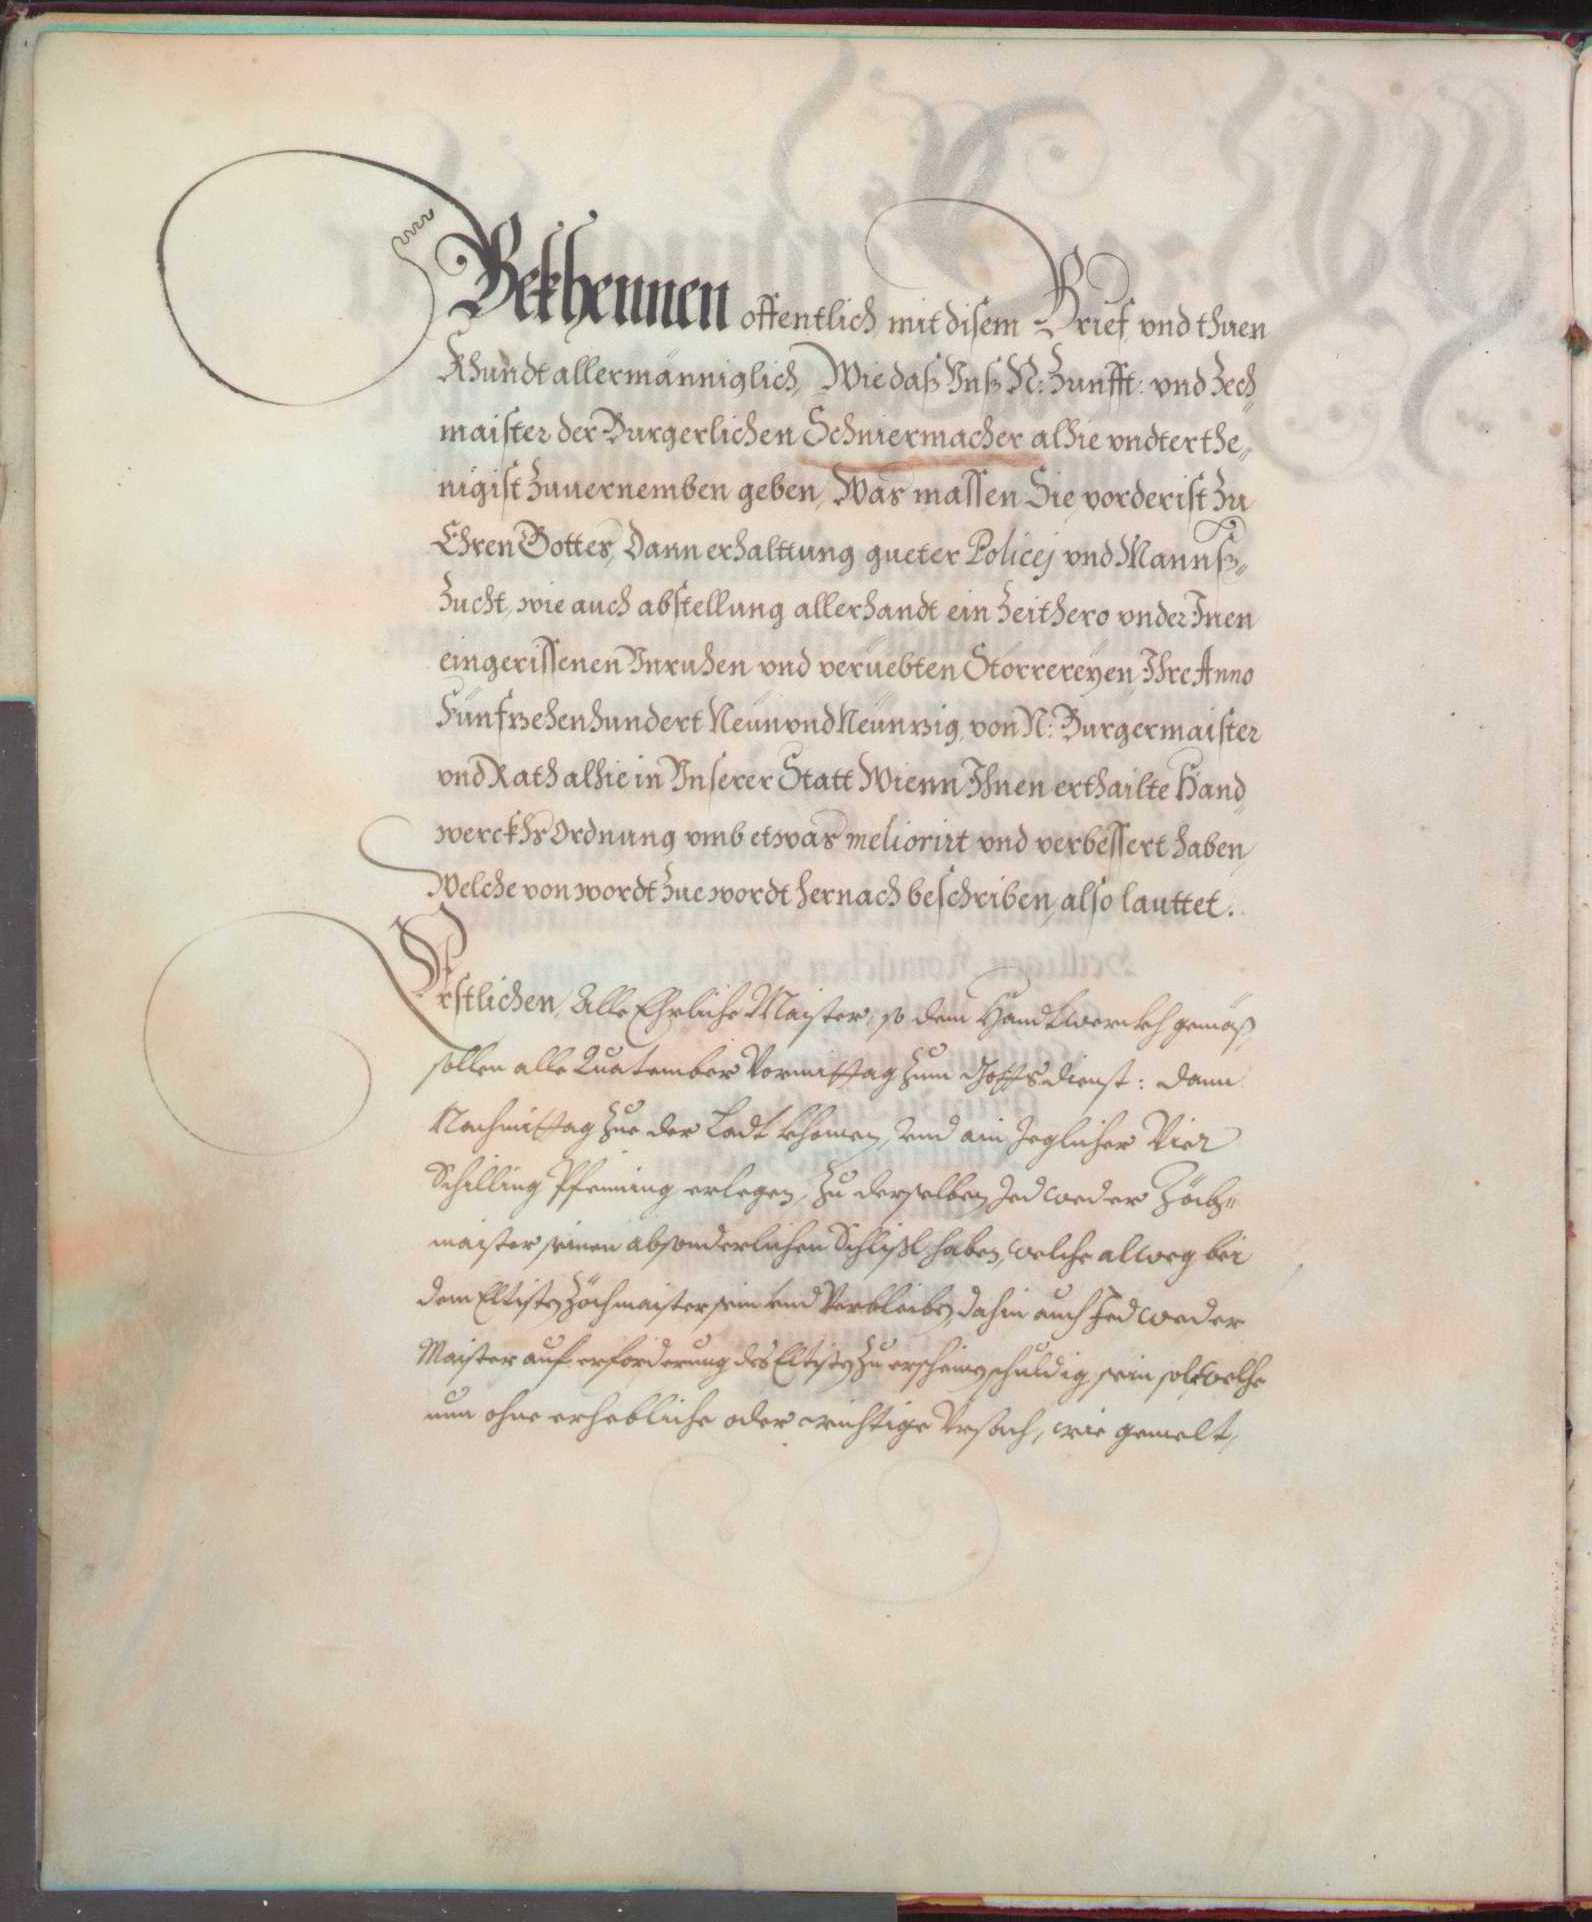 Bekhennen offentlich mit disem Brief vnd thuen
Khundt allermänniglich, Wie daß Vnß N: Zunfft: vnd Zech
maister der Burgerlichen Schniermacher alhie vndterthe„
nigist Zuuernemben geben, Was massen Sie, vorderist Zu
Ehren Gottes, Dann erhalttung gueter Policej vnd Mannß„
Zucht, wie auch abstellung allerhandt ein Zeithero vnder Inen
eingerissenen Vnruhen vnd veruebten Störrereÿen, Ihre Anno
Fünfzehenhundert Neün vnd Neünzig, von N: Burgermaister
vnd Rath alhie in Vnserer Statt Wienn Ihnen erthailte Hand
werckhs Ordnung vmb etwas meliorirt vnd verbessert haben,
Welche von wordt Zue wordt hernach beschriben, also lauttet.
Erstlichen, Alle Ehrliche Maister, so dem Handtwerckh gemäß,
sollen alle Quatember Vormittag zum Gottsdienst: dann
Nachmittag Zue der Ladt khomen, vnd ain Jeglicher Vier
Schilling Pfening erlegen, Zu derselben Jedweder Zöch„
maister seinen absonderlichen Schlißl haben, welche alweg bei
dem Eltisten Zöchmaister sein vnd Verbleiben, dahin auch Jedweder
Maister auf erforderung des Eltisten Zu erscheinen schuldig sein soll, welche
nun ohne erhebliche oder wichtige Vrsach, wie gemelt,